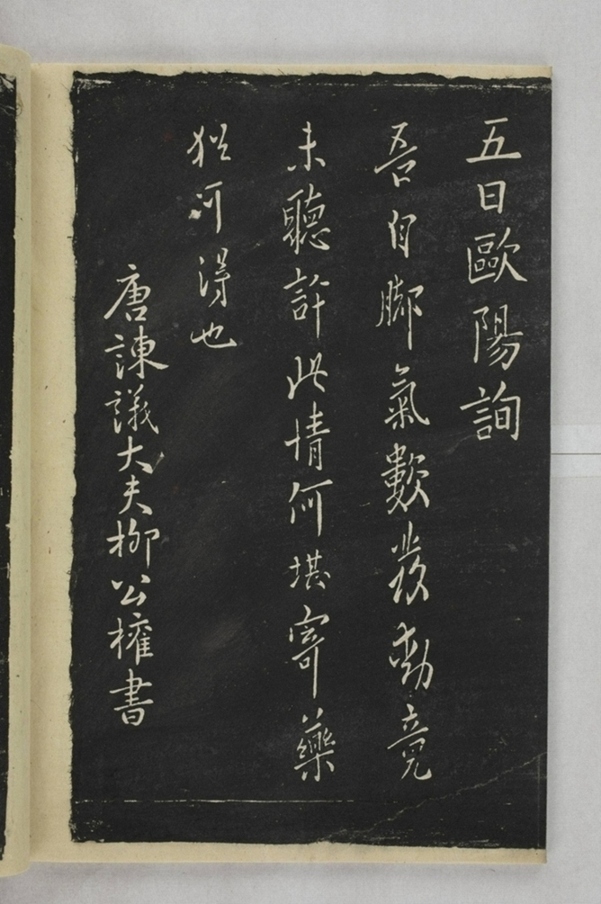 五日歐陽詢
吾自脚氣數發動竟
未聽許此情何堪寄藥
猶河得也
唐諫議大夫柳公權書